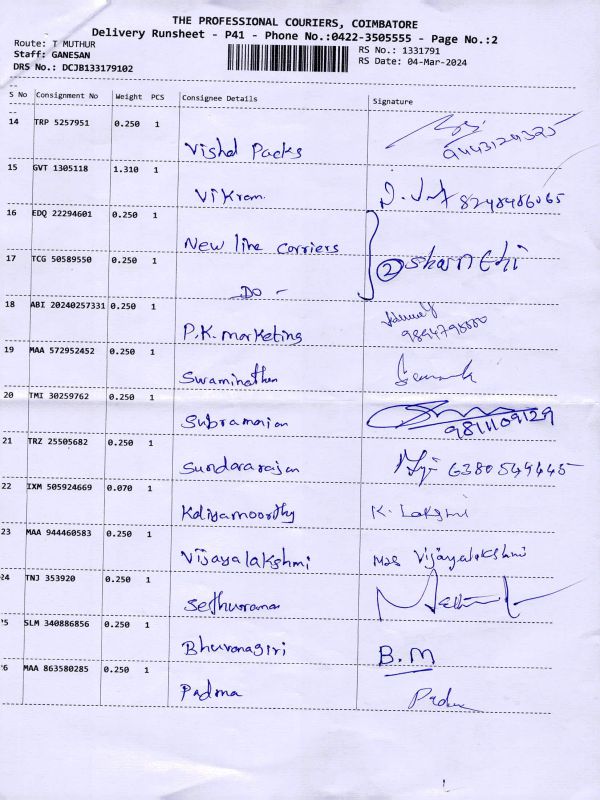 THE PROFESSIONAL COURIERS, COIMBATORE
Delivery Runsheet - P41 - Phone No.:0422-3505555 - Page No.:2
Route: T MUTHUR
Staff: GANESAN
DRS No.: DCJB133179102
RS No.: 1331791
RS Date: 04-Mar-2024
S No Consignment No Weight PCS Consignee Details Signature
14 TRP 5257951 0.250 1
Vishal Packs 9443124325
15 GVT 1305118 1.310 1
Vikram 8248486065
16 EDQ 22294601 0.250 1
New line carriers
17 TCG 50589550 0.250 1
2
DO -
18 ABI 20240257331 0.250 1
P.K. marketing
19 MAA 572952452 0.250 1
Swaminathan
20 TMI 30259762 0.250 1
Subramanian 9811109129
21 TRZ 25505682 0.250 1
Sundararajan 6380549445
22 IXM 505924669 0.070 1
Kaliyamoorthy K. Lakshmi
23 MAA 944460583 0.250 1
Vijayalakshmi Mrs Vijayalakshmi
24 TNJ 353920 0.250 1
Sethurama
25 SLM 340886856 0.250 1
Bhuvanagiri B.M
26 MAA 863580285 0.250 1
Padma Padma